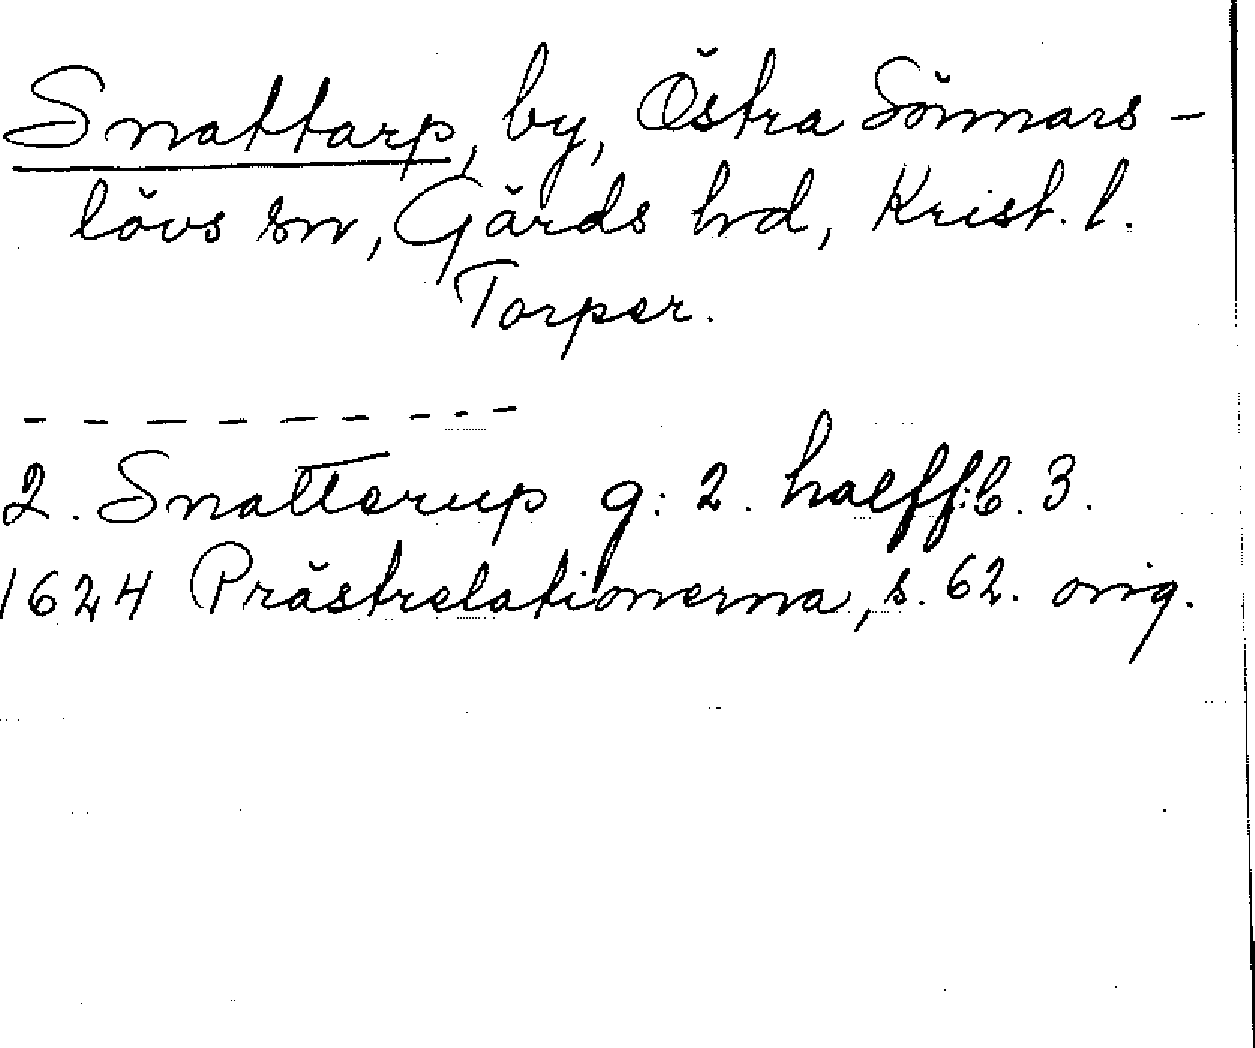 Snattarp, by, Östra Sönnars-
lövs sn, Gärds hd, Krist. l.
Torper.
- - - - - - - - -
2. Snatterup g: 2. haeff:b. 3.
1624 Prästrelationerna, s. 62. orig.